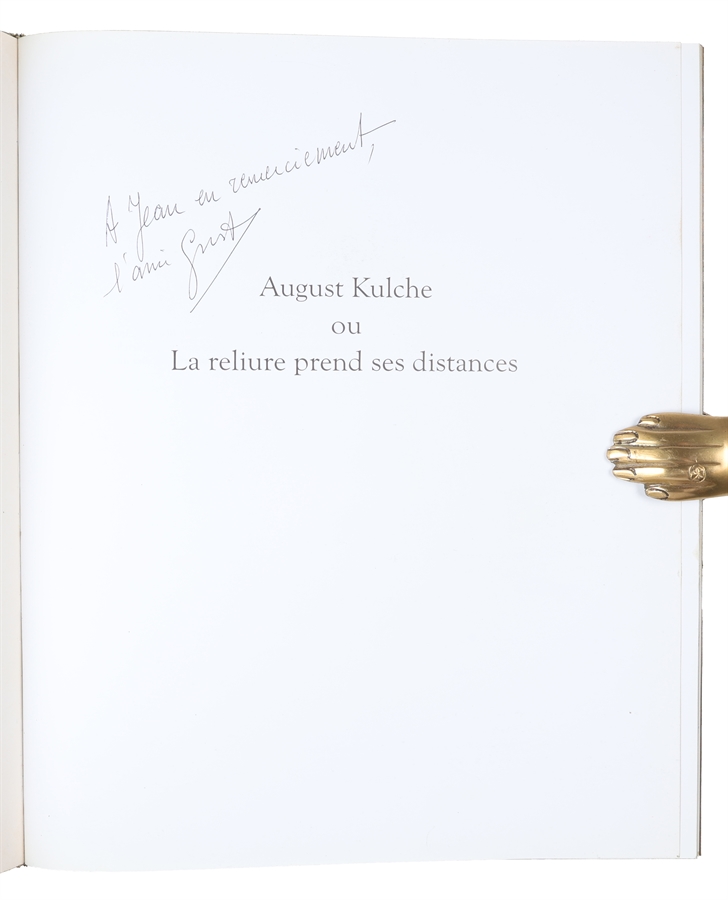 A Jean en remerciement,
l'ami Gust
August Kulche
ou
La reliure prend ses distances